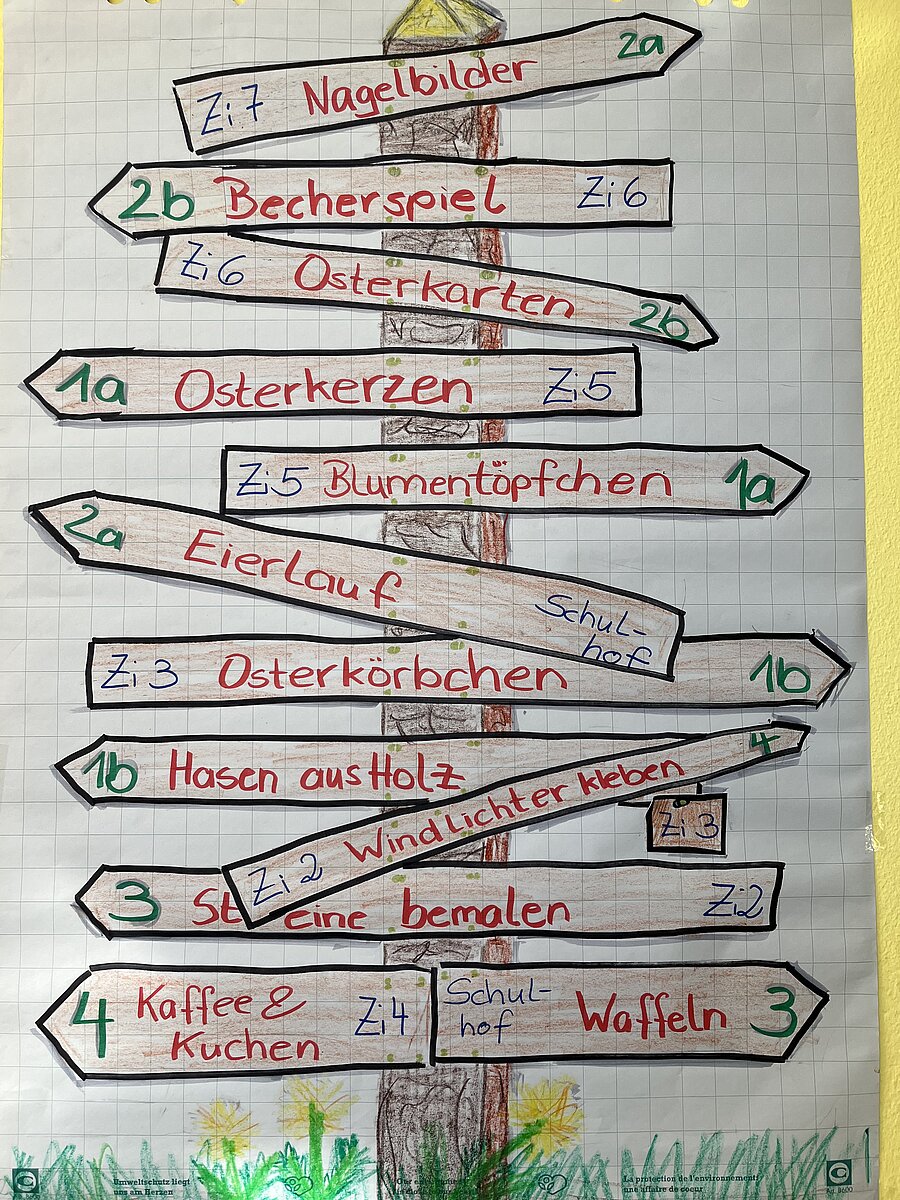 Zi 7 Nagelbilder 2a
2b Becherspiel Zi 6
Zi 6 Osterkarten 2b
1a Osterkerzen Zi 5
Zi 5 Blumentöpfchen 1a
2a Eierlauf Schul-
hof
Zi 3 Osterkörbchen 1b
1b Hasen aus Holz
Zi 3
Zi 2 Windlichter kleben 4
3 Steine bemalen Zi 2
4 Kaffee & 
Kuchen Zi 4
Schul-
hof Waffeln 3
Umweltschutz liegt
uns am Herzen
La protection de l'environnement:
une affaire de coeur